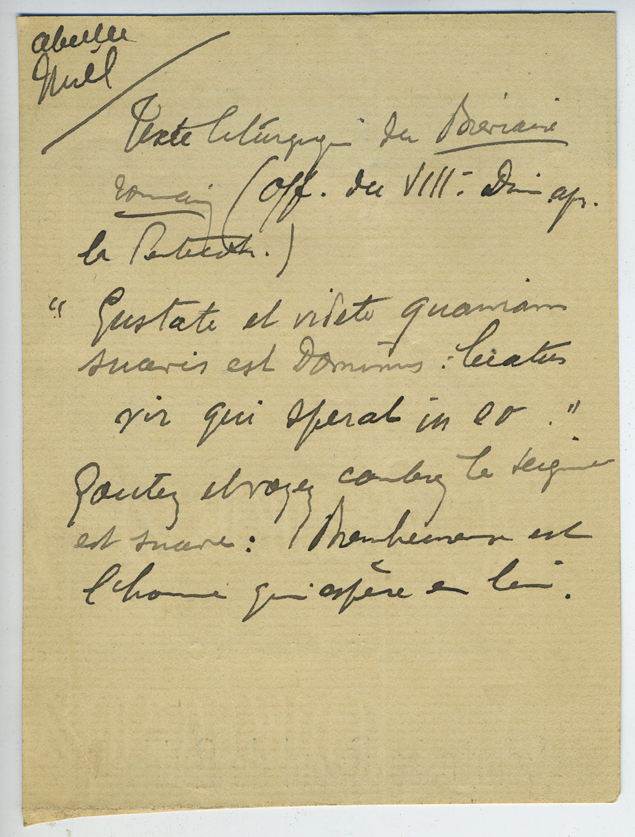 abeille
Miel
Texte liturgique du Bréviaire
romain (Off. du VIII: Dim ap.
la Pentecôte.)
“ Gustate et videte quoniam
suavis est Dominus : beatus
vir qui sperat in eo ."
Goutez et voyez combien le Seigneur
est suave : Bienheureux est
l'homme qui espère en lui.